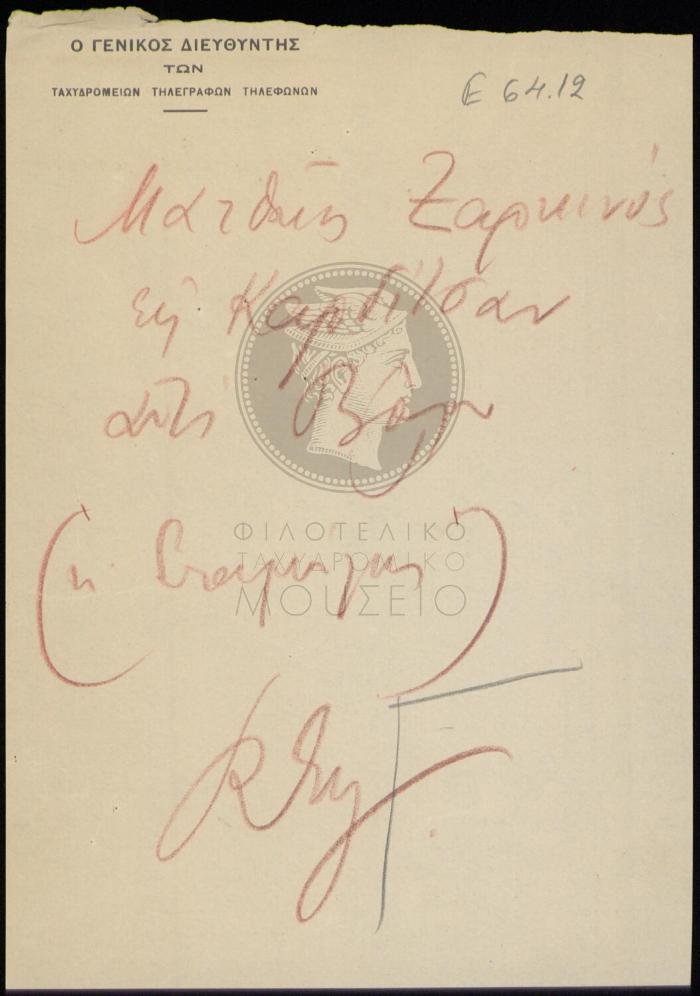 Ο ΓΕΝΙΚΟΣ ΔΙΕΥΘΥΝΤΗΣ
ΤΩΝ
ΤΑΧΥΔΡΟΜΕΙΩΝ ΤΗΛΕΓΡΑΦΩΝ ΤΗΛΕΦΩΝΩΝ
Ε 64.12
Ματθαίος Ζαρκινός
εις Καρδίτσαν
από Βόλον
ΦΙΛΟΤΕΛΙΚΟ
ΤΑΧΥΔΡΟΜΙΚΟ
ΜΟΥΣΕΙΟ